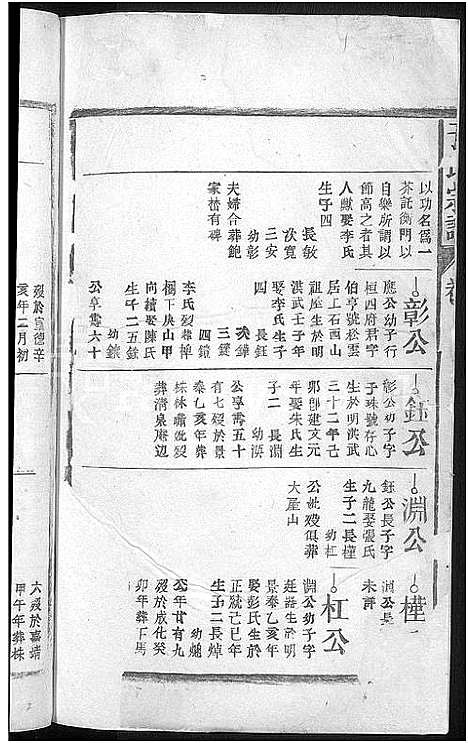 以功名爲一
芥託衡門以
自樂所謂以
節高之者其
人歟娶李氏
生子四
長敏
次寬
三安
幼彰
夫婦合葬鮑
家楂有碑
彰公
應公幼子行
桓四府君字
伯亨號松雲
居上石西山
祖座生於明
洪武壬子年
娶李氏生子
四
長鈺
次鏵
三鑁
四鐀
李氏歿葬樟
樹下庚山甲
向續娶陳氏
生子二五錂
幼鑲
公享壽六十
鈺公
彰公幼子字
子珠號存心
生於明洪武
三十二年己
卯卽建文元
年娶朱氏生
子二
長淵
幼漢
公享壽五十
七歿於景
泰乙亥年葬
葬清泉庵边
淵公
鈺公長子字
九龍娶張氏
生子二長橦
幼杠
公妣歿俱葬
大屋山
橦
淵公長
未詳
杠公
淵公幼子字
廷器生於明
景泰乙亥年
娶彭氏生於
正統己巳年
生子二長焯
幼
公年廿有九
歿於成化癸
卯年葬下馬
歿於宣德辛
亥年二月初
六歿於嘉靖
甲午年葬株